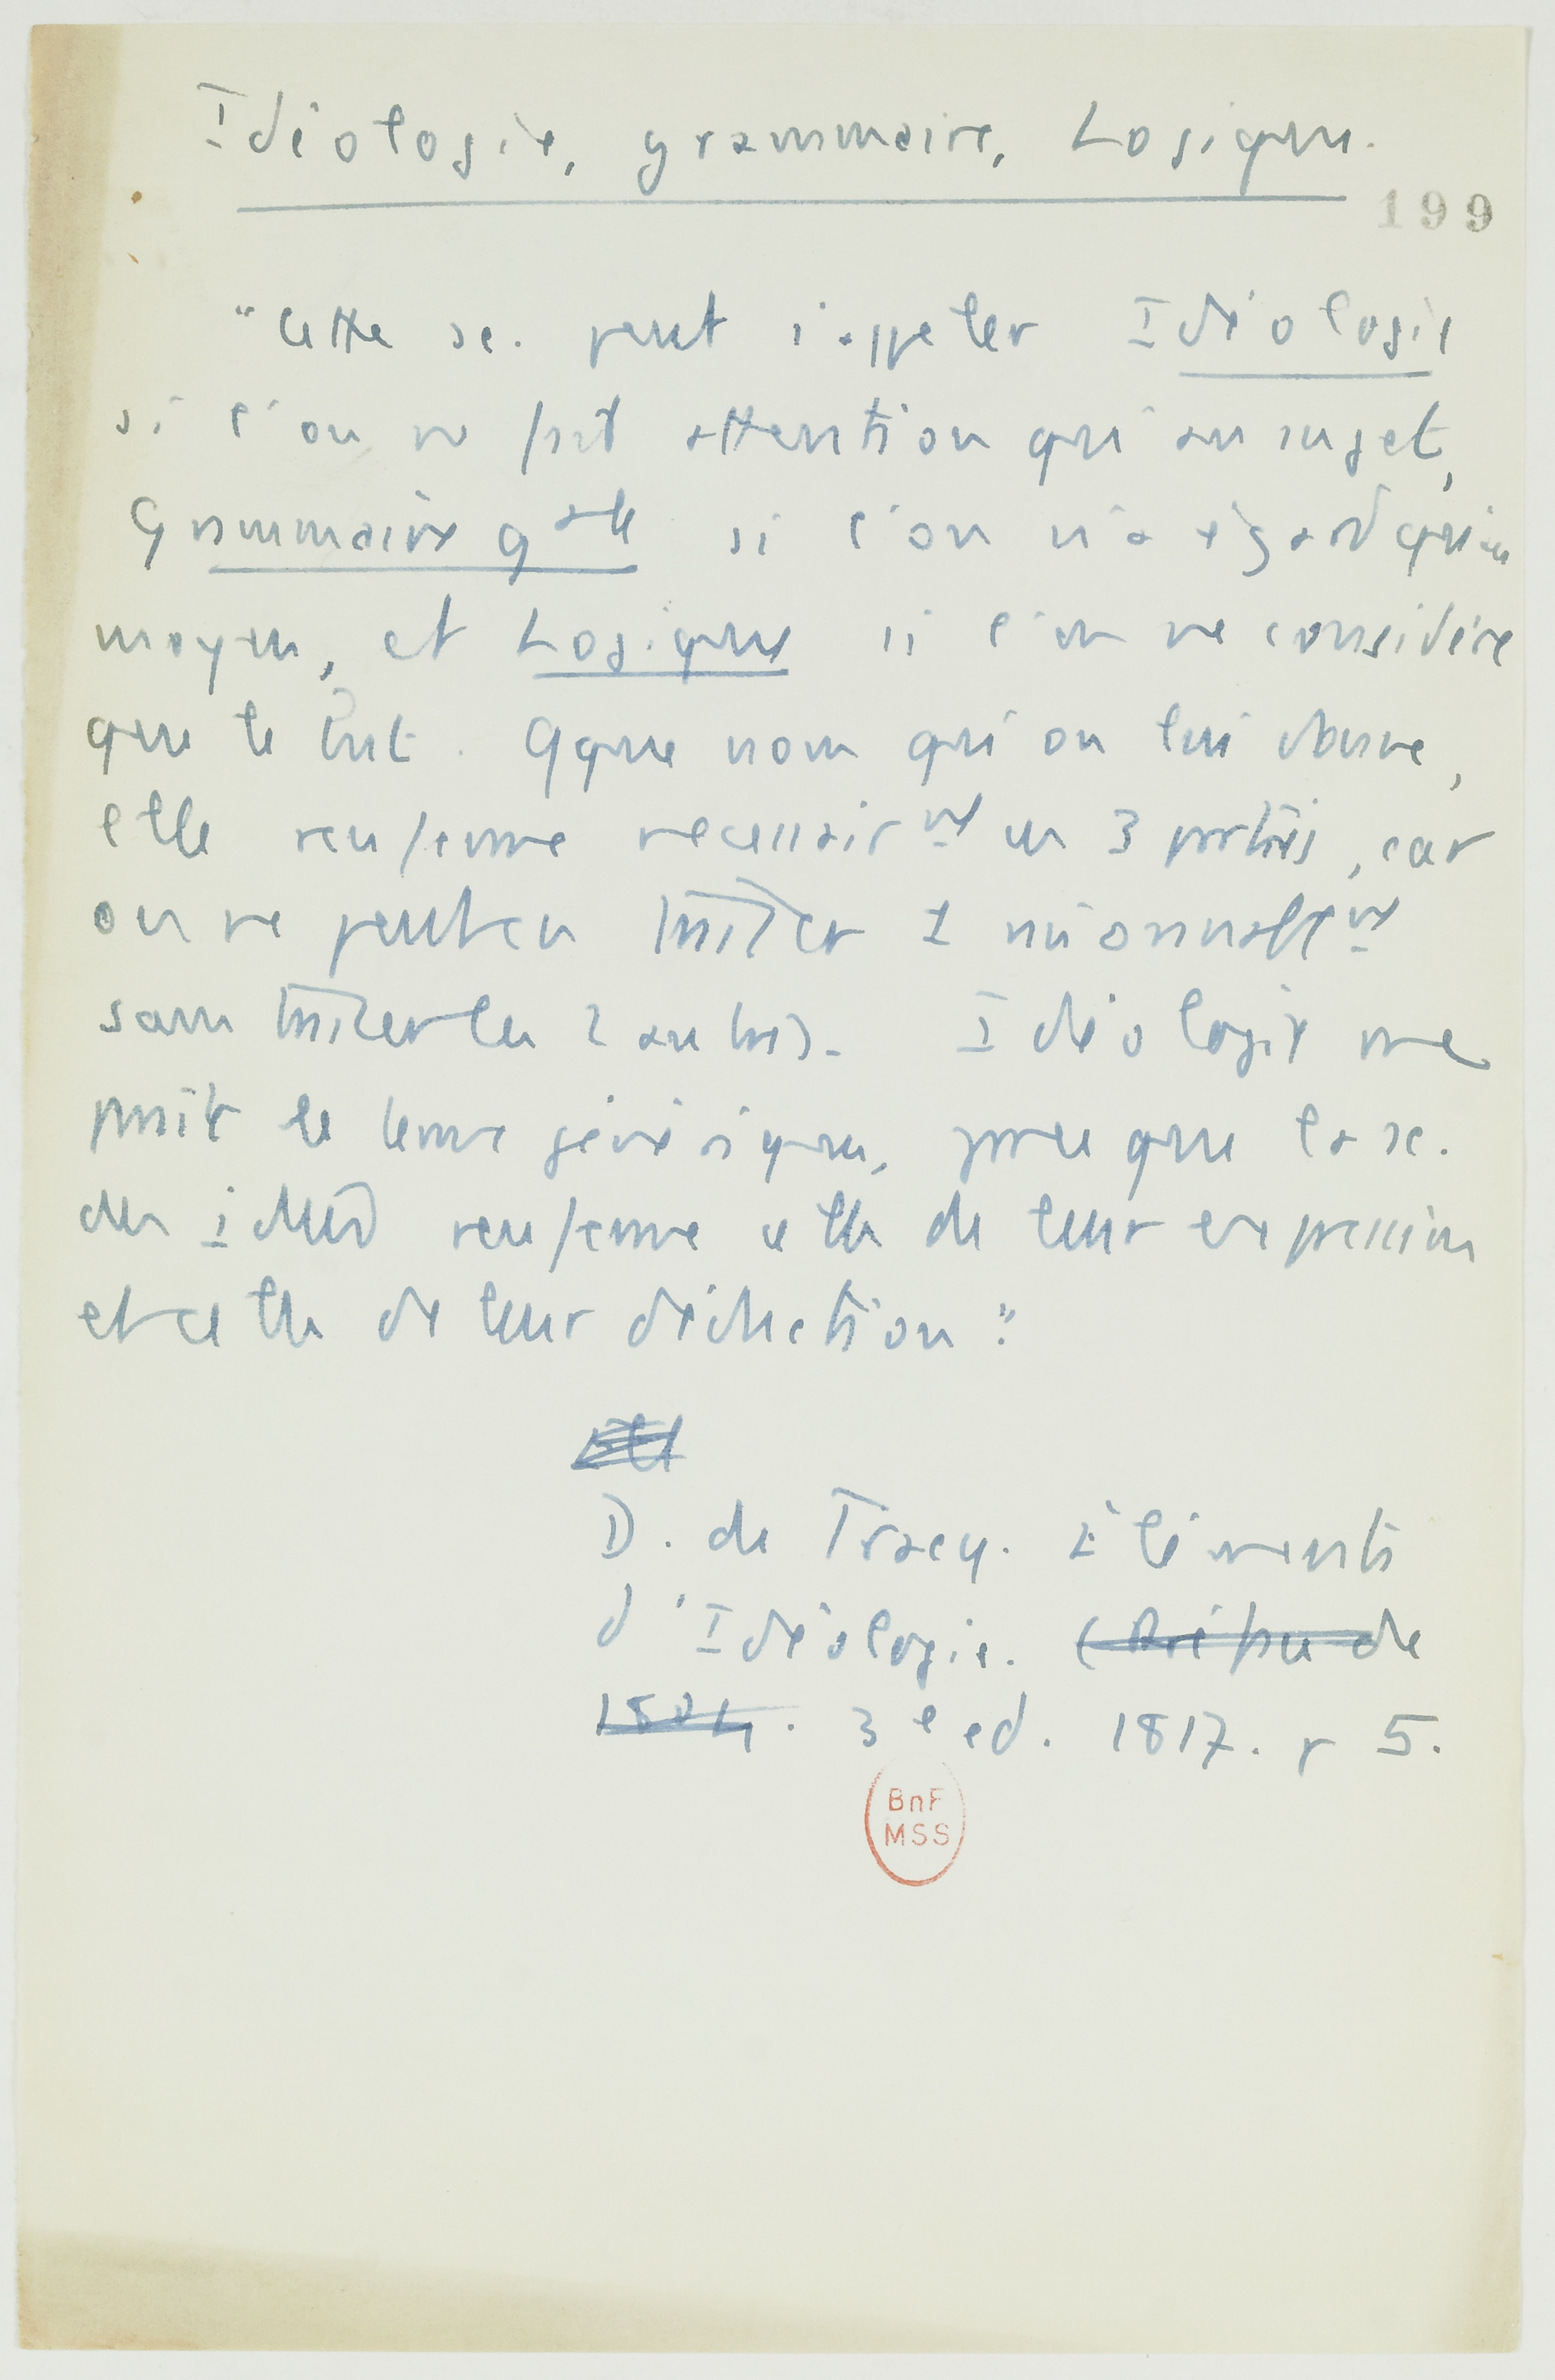 Idéologie, grammaire, Logique.
199
"Cette sc. peut s'appeler Idéologie
si l'on ne fait attention qu'au sujet,
Grammaire gale si l'on n'a égard qu'au
moyen, et Logique si l'on ne considère
que le but. Qque nom qu'on lui donne,
elle renferme necessairnt ces 3 parties, car
on ne peut en traiter 1 raisonnablnt
sans traiter les 2 autres. Idéologie me
paraît le terme générique, parce que la sc.
des idées renferme celle de leur expression
et celle de leur déduction."
D. de Tracy. Eléments
d'Idéologie. (Préface de
1804. 3e ed. 1817. p 5.
BnF
MSS